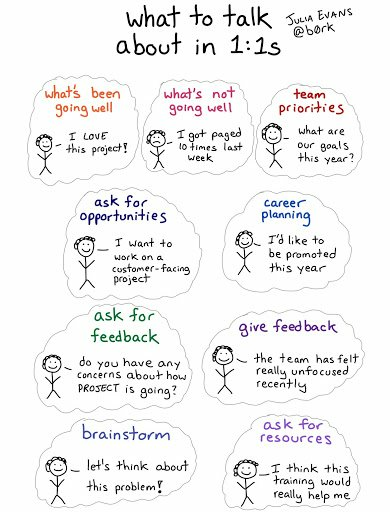 what to talk
about in 1:1s
JULIA EVANS
@børk
what's been
going well
I LOVE
this project!
what's not
going well
I got paged
10 times last
week
team
priorities
what are
our goals
this year?
ask for
opportunities
I want to
work on a
customer-facing
project
career
planning
I'd like to
be promoted
this year
ask for
feedback
do you have any
concerns about how
PROJECT is going?
give feedback
the team has felt
really unfocused
recently
brainstorm
let's think about
this problem!
ask for
resources
I think this
training would
really help me